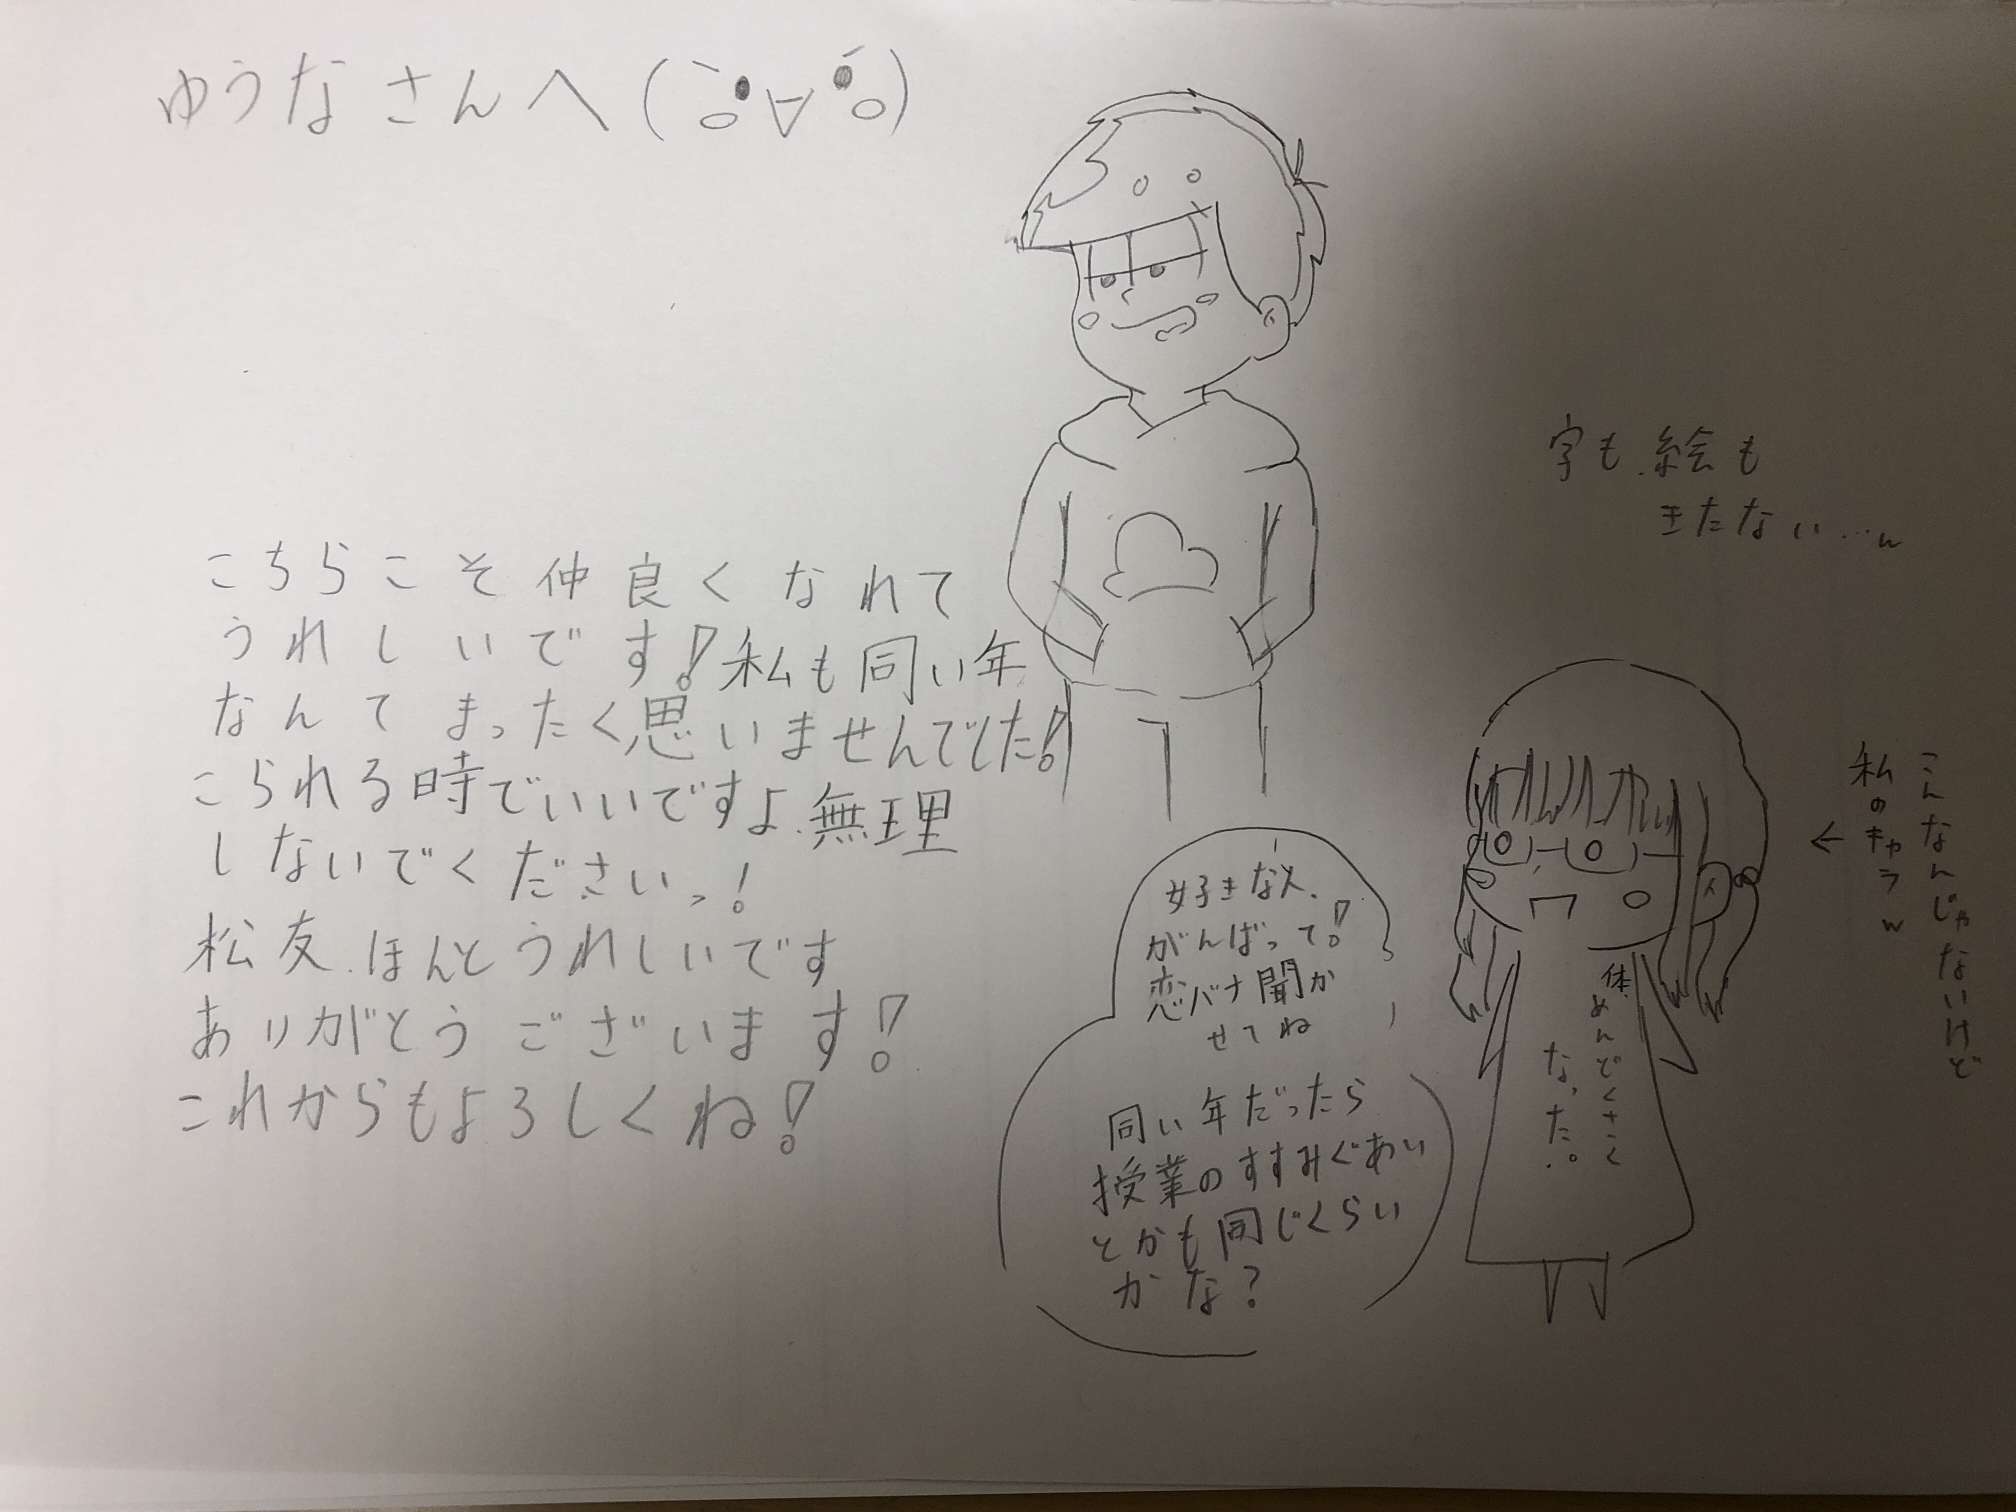 ゆうなさんへ(`•∀•´)
こちらこそ仲良くなれて
うれしいです!私も同い年
なんてまったく思いませんでした!
こられる時でいいですよ.無理
しないでくださいっ!
松友.ほんとうれしいです
ありがとうございます!
これからもよろしくね!
好きな人、
がんばって!
恋バナ聞か
せてね
同い年だったら
授業のすすみぐあい
とかも同じくらい
かな?
字も.絵も
きたない…
体、めんどくさく
なった。
こんなんじゃないけど
私のキャラw
←